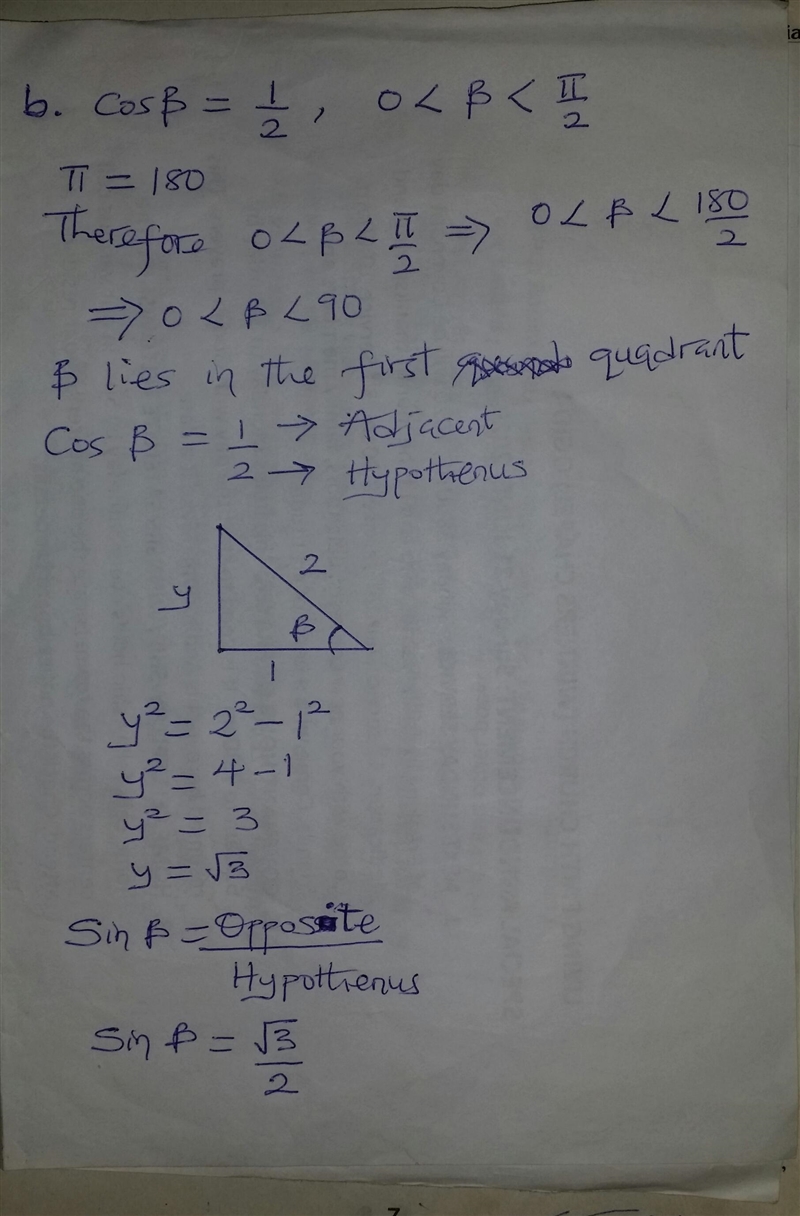 b. Cosβ = 1/2, 0 < β < π/2
π = 180
Therefore 0 < β < π/2 ⇒ 0 < β < 180/2
⇒ 0 < β < 90
β lies in the first quadrant
Cos β = 1/2 → Adjacent
→ Hypothenus
2
y
β
1
y² = 2² - 1²
y² = 4 - 1
y² = 3
y = √3
Sin β = Opposite
Hypothenus
Sin β = √3/2